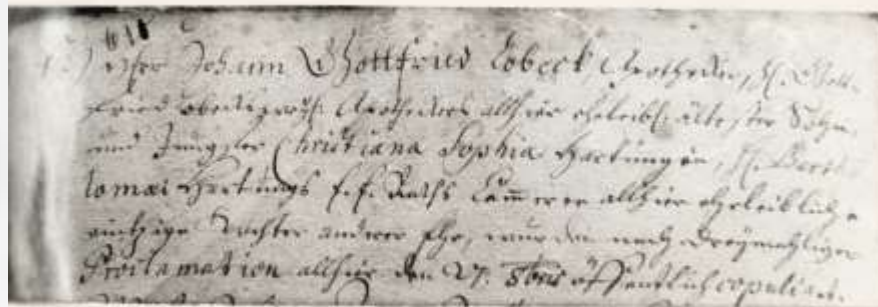 Herr Johann Gottfried Lobeck, Apotheker, H. Gott-
fried Lobecks, Apothekers allhier eheleibl. ältester Sohn,
und Jungfer Christiana Sophia Hartungin, H. Bartho-
lomaei Hartungs E. E. Raths Cämmerer allhier eheleibliche
einzige Tochter anderer Ehe, wurden nach dreymahliger
Proclamation allhier den 27. 8bris öffentlich copuliret.